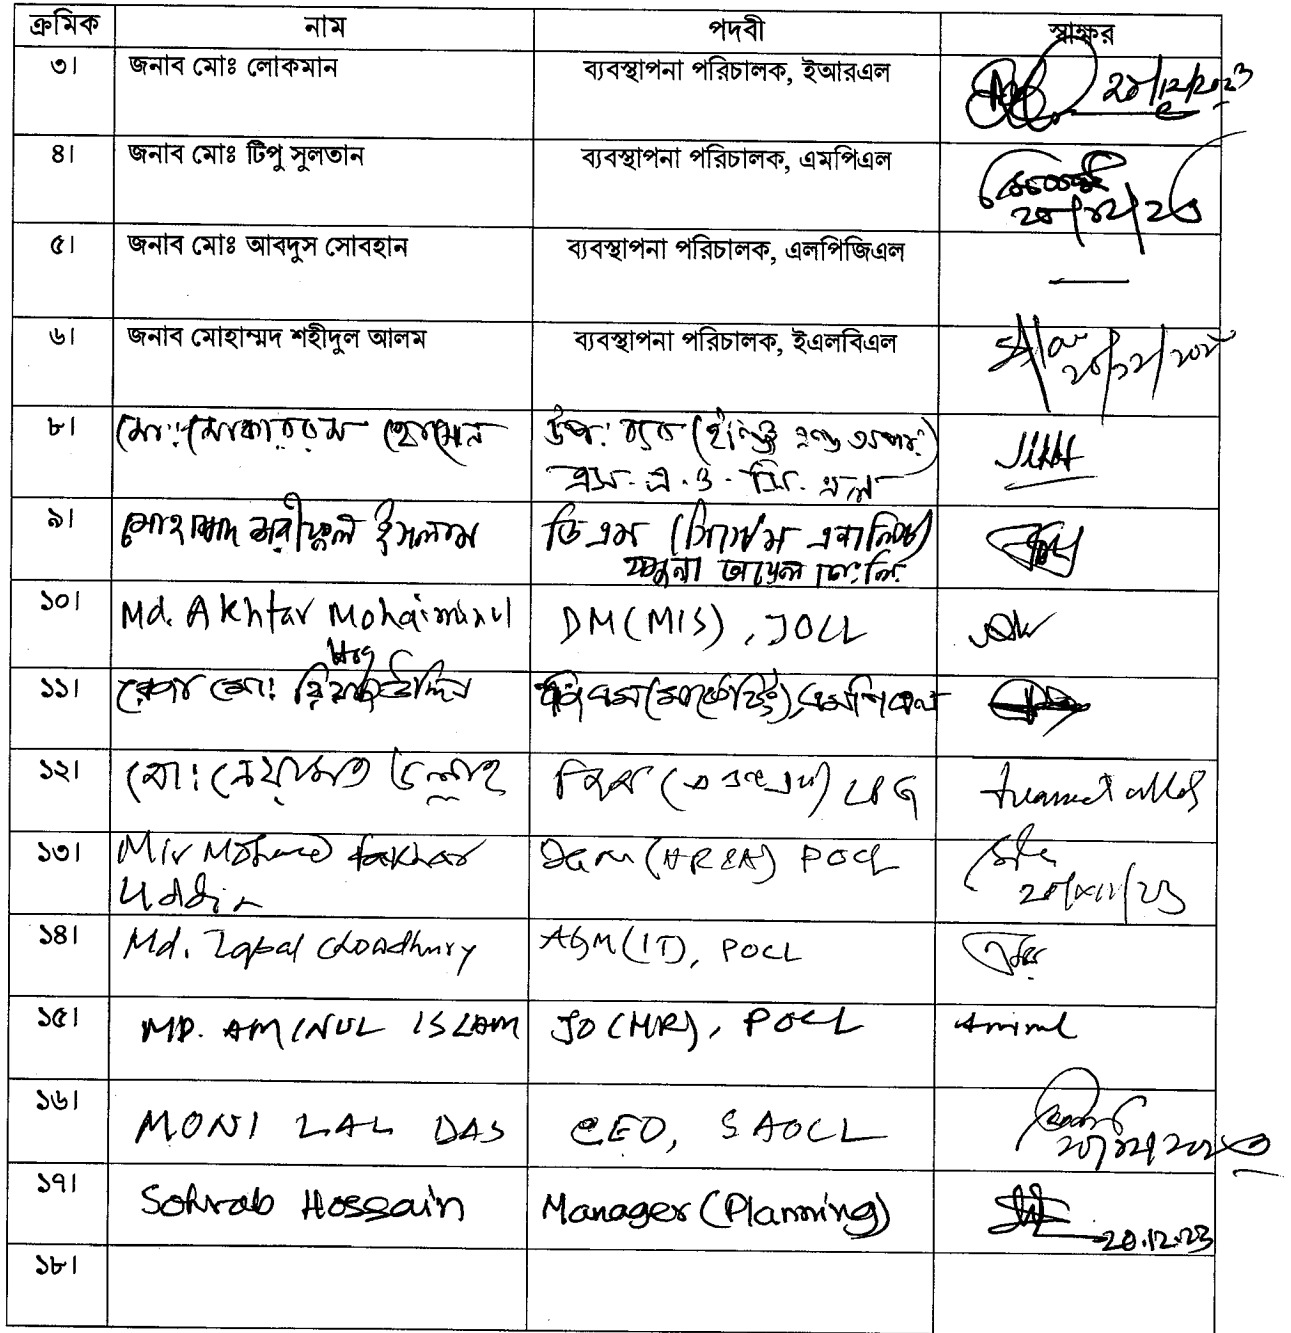 ক্রমিক নাম পদবী স্বাক্ষর
৩। জনাব মোঃ লোকমান ব্যবস্থাপনা পরিচালক, ইআরএল 20/12/2023
৪। জনাব মোঃ টিপু সুলতান ব্যবস্থাপনা পরিচালক, এমপিএল
২০/১২/২৩
৫। জনাব মোঃ আবদুস সোবহান ব্যবস্থাপনা পরিচালক, এলপিজিএল —
৬। জনাব মোহাম্মদ শহীদুল আলম ব্যবস্থাপনা পরিচালক, ইএলবিএল
৮। মো: মোকাররম হোসেন
এস.এ.ও.সি.এল
৯। মোহাম্মদ শরীফুল ইসলাম ডিএম (সিস্টেম এনালিস্ট)
যমুনা অয়েল কোং লি:
১০। Md. Akhtar Mohaiminul DM(MIS), JOCL
Hoq
১১। মো: রিয়াজউদ্দিন
১২। মো: নেয়ামত উল্লাহ LPG
১৩। Mir Mohamed Fakhar DGM (AREA) POCL
Uddin 20/XII/23
১৪। Md. Iqbal Chowdhury AGM(IT), POCL
১৫। MD. AMINUL ISLAM JO(HR), POCL Aminul
১৬। MONI LAL DAS CEO, SAOCL
২০/১২/২০২৩
১৭। Sohrab Hossain Manager (Planning)
20.12.23
১৮।